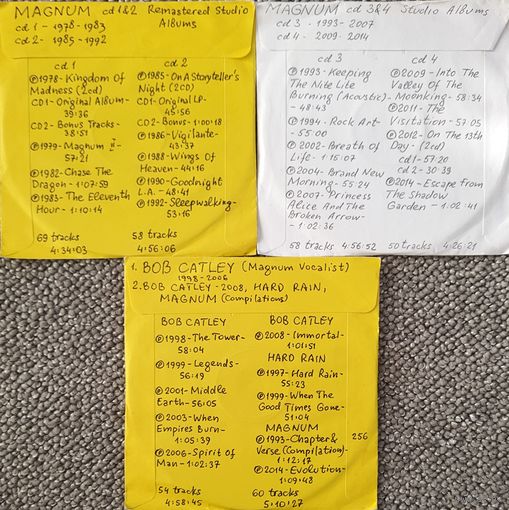 MAGNUM cd 1&2 Remastered Studio
cd 1 - 1978 - 1983 Albums
cd 2 - 1985 - 1992
cd 1
℗1978 - Kingdom Of
Madness (2cd)
CD1 - Original Album -
39:36
CD2 - Bonus Tracks -
38:51
℗1979 - Magnum II -
57:21
℗1982 - Chase The
Dragon - 1:07:59
℗1983 - The Eleventh
Hour - 1:10:14
69 tracks
4:34:03
cd 2
℗1985 - On A Storyteller's
Night (2CD)
CD1 - Original LP -
45:56
CD2 - Bonus - 1:00:18
℗1986 - Vigilante -
43:37
℗1988 - Wings Of
Heaven - 44:16
℗1990 - Goodnight
L.A. - 48:41
℗1992 - Sleepwalking -
53:16
58 tracks
4:56:06
MAGNUM cd 3&4 Studio Albums
cd 3 - 1993 - 2007
cd 4 - 2009 - 2014
cd 3
℗1993 - Keeping
The Nite Lite
Burning (Acoustic) -
- 48:43
℗1994 - Rock Art -
- 55:00
℗2002 - Breath Of
Life - 1:15:07
℗2004 - Brand New
Morning - 55:24
℗2007 - Princess
Alice And The
Broken Arrow -
- 1:02:36
58 tracks 4:56:52
cd 4
℗2009 - Into The
Valley Of The
Moonking - 58:34
℗2011 - The
Visitation - 57:05
℗2012 - On The 13th
Day - (2cd)
cd1 - 57:20
cd2 - 30:39
℗2014 - Escape from
The Shadow
Garden - 1:02:41
50 tracks 4:26:21
1. BOB CATLEY (Magnum Vocalist)
1998 - 2006
2. BOB CATLEY - 2008, HARD RAIN,
MAGNUM (Compilations)
BOB CATLEY
℗1998 - The Tower -
58:04
℗1999 - Legends -
56:19
℗2001 - Middle
Earth - 56:05
℗2003 - When
Empires Burn -
1:05:39
℗2006 - Spirit of
Man - 1:02:37
54 tracks
4:58:45
BOB CATLEY
℗2008 - Immortal -
1:01:51
HARD RAIN
℗1997 - Hard Rain -
55:23
℗1999 - When The
Good Times Gone -
51:04
MAGNUM
℗1993 - Chapter &
Verse (Compilation) -
1:12:17
℗2014 - Evolution -
1:09:48
256
60 tracks
5:10:27